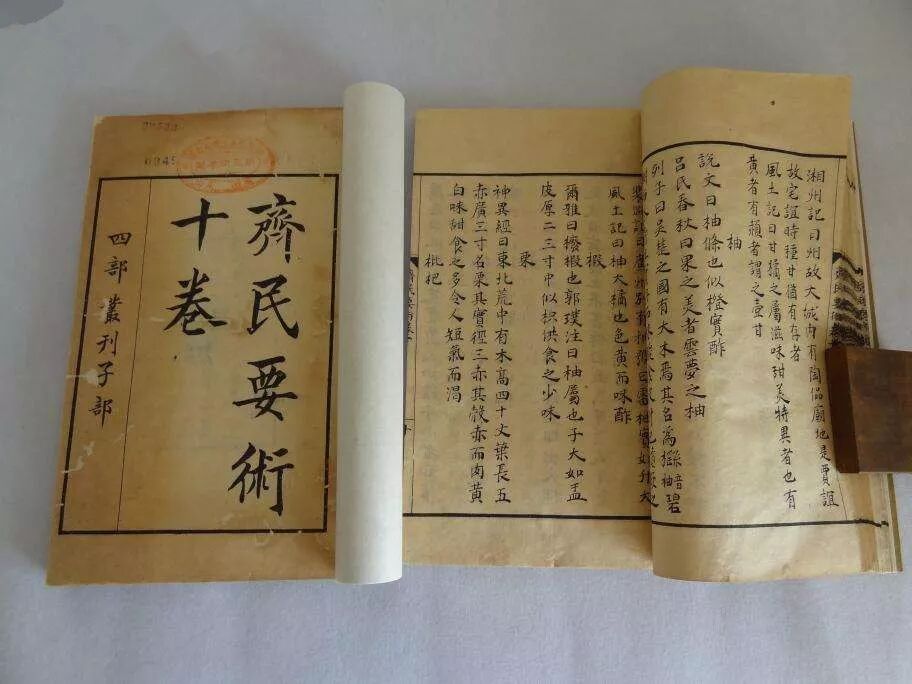 齊民要術
十卷
四部叢刊子部
湘州記曰州故大城內有陶侃廟地是賈誼
故宅誼時種甘猶有存者
風土記曰甘橘之屬滋味甜美特異者也有
黃者有赬者謂之壺甘
柚
說文曰柚條也似橙實酢
呂氏春秋曰果之美者雲夢之柚
列子曰吳楚之國有大木焉其名為櫾音柚碧
裴淵記曰廣州別有柚號曰雷柚實如升大
風土記曰柚大橘也色黃而味酢
椵
爾雅曰櫠椵也郭璞注曰柚屬也子大如盂
皮厚二三寸中似枳供食之少味
栗
神異經曰東北荒中有木高四十丈葉長五
赤廣三寸名栗其實徑三赤其殼赤而肉黃
白味甜食之多令人短氣而渴
枇杷